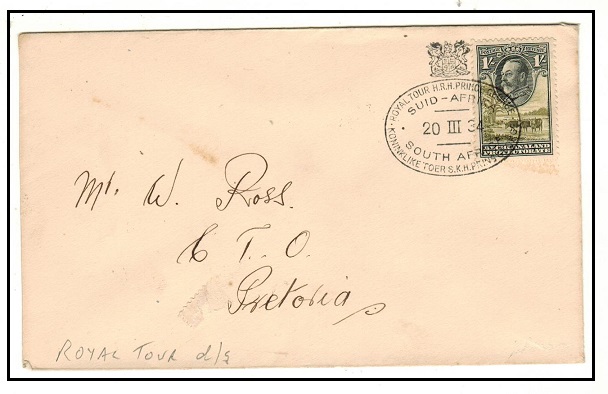 1/- 1/-
ROYAL TOUR H.R.H. PRINCE
SUID-AFRIKA
20 III 34
SOUTH AFR
KONINKLIJKE TOER S.K.H. PRINS
BECHUANALAND
PROTECTORATE
Mr. W. Ross.
C T. O.
Pretoria
ROYAL TOUR d/s